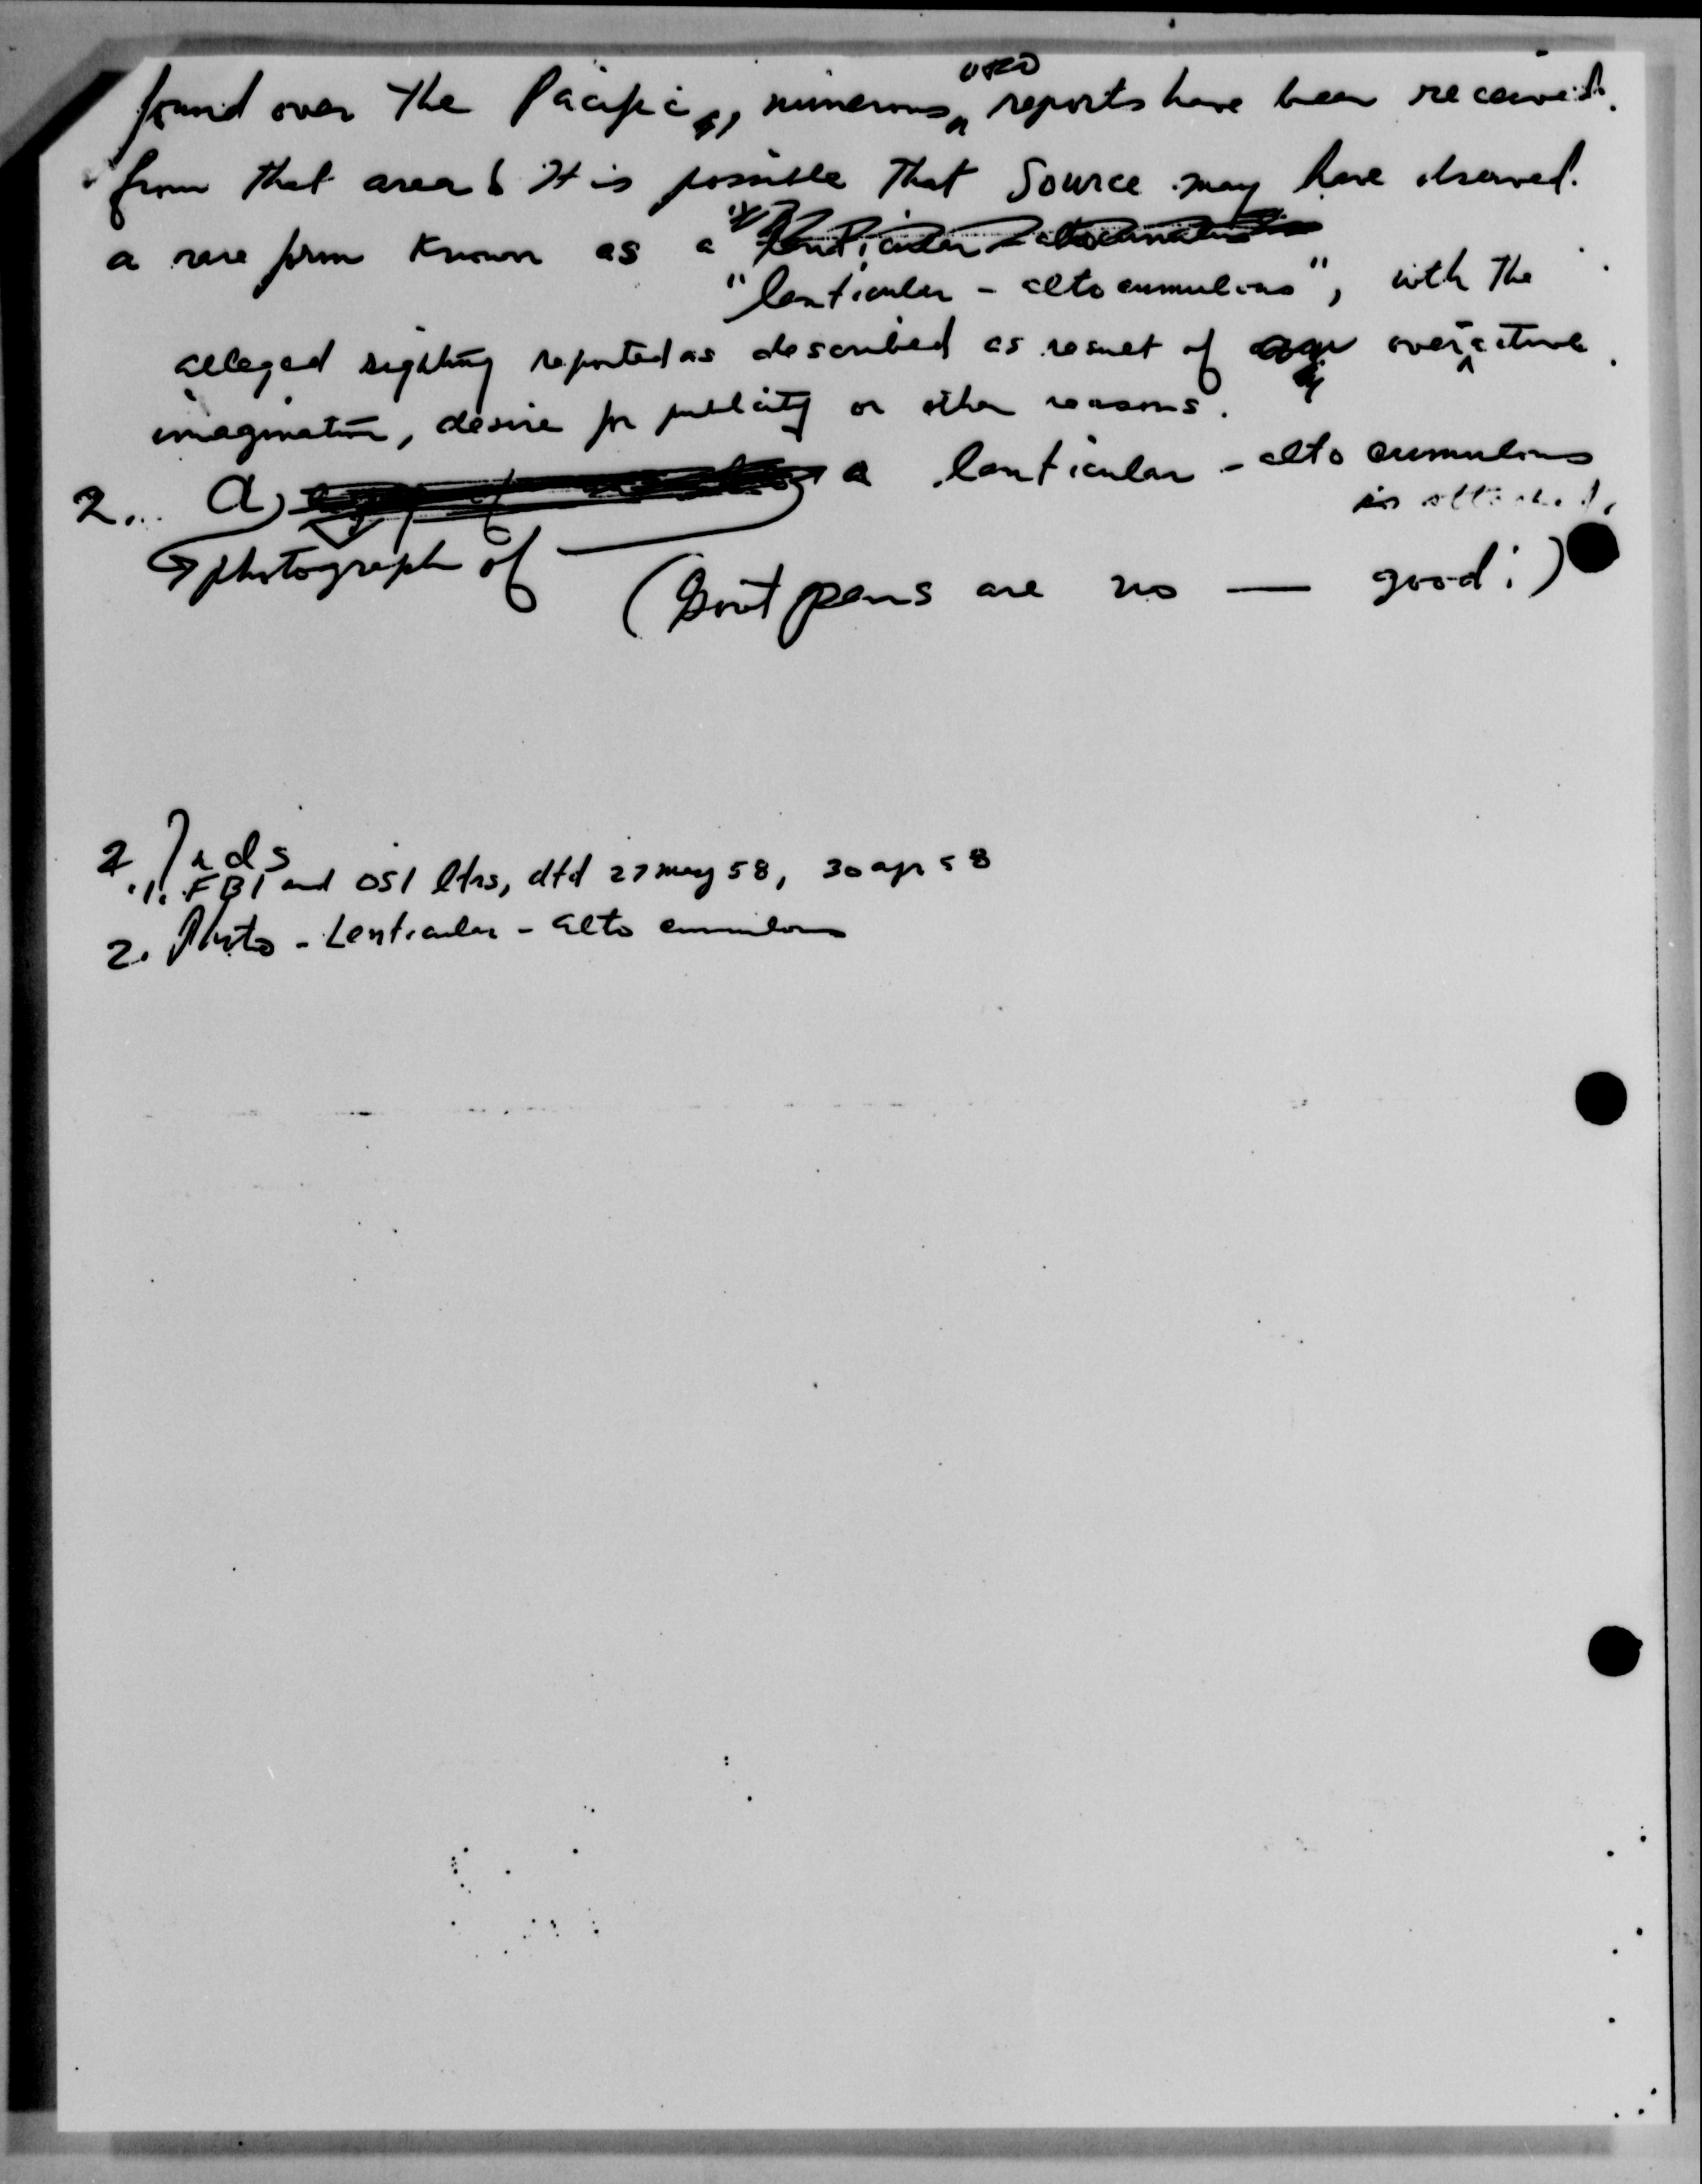 found over the Pacific, numerous UFO reports have been received.
from that area & It is possible that Source may have observed.
a rare form known as a
"lenticular - alto cumulous", with the
alleged sighting reported as described as result of overactive
imagination, desire for publicity or other reasons.
2. A a lenticular - alto cumulous
is attached.
photograph of
(Gov't pens are no — good!)
2 Inds
1. FBI and OSI ltrs, dtd 27 may 58, 30 apr 58
2. Photo - Lenticular - alto cumulous